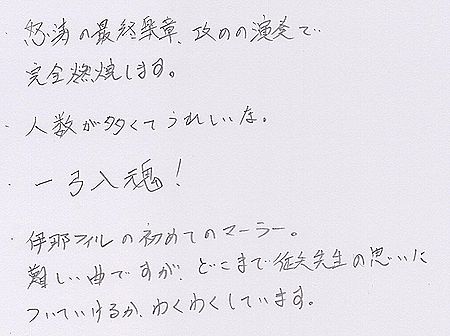 ・怒涛の最終楽章、攻めの演奏で
完全燃焼します。
・人数が多くてうれしいな。
・一弓入魂!
・伊那フィルの初めてのマーラー。
難しい曲ですが、どこまで征矢先生の思いに
ついていけるか、わくわくしています。